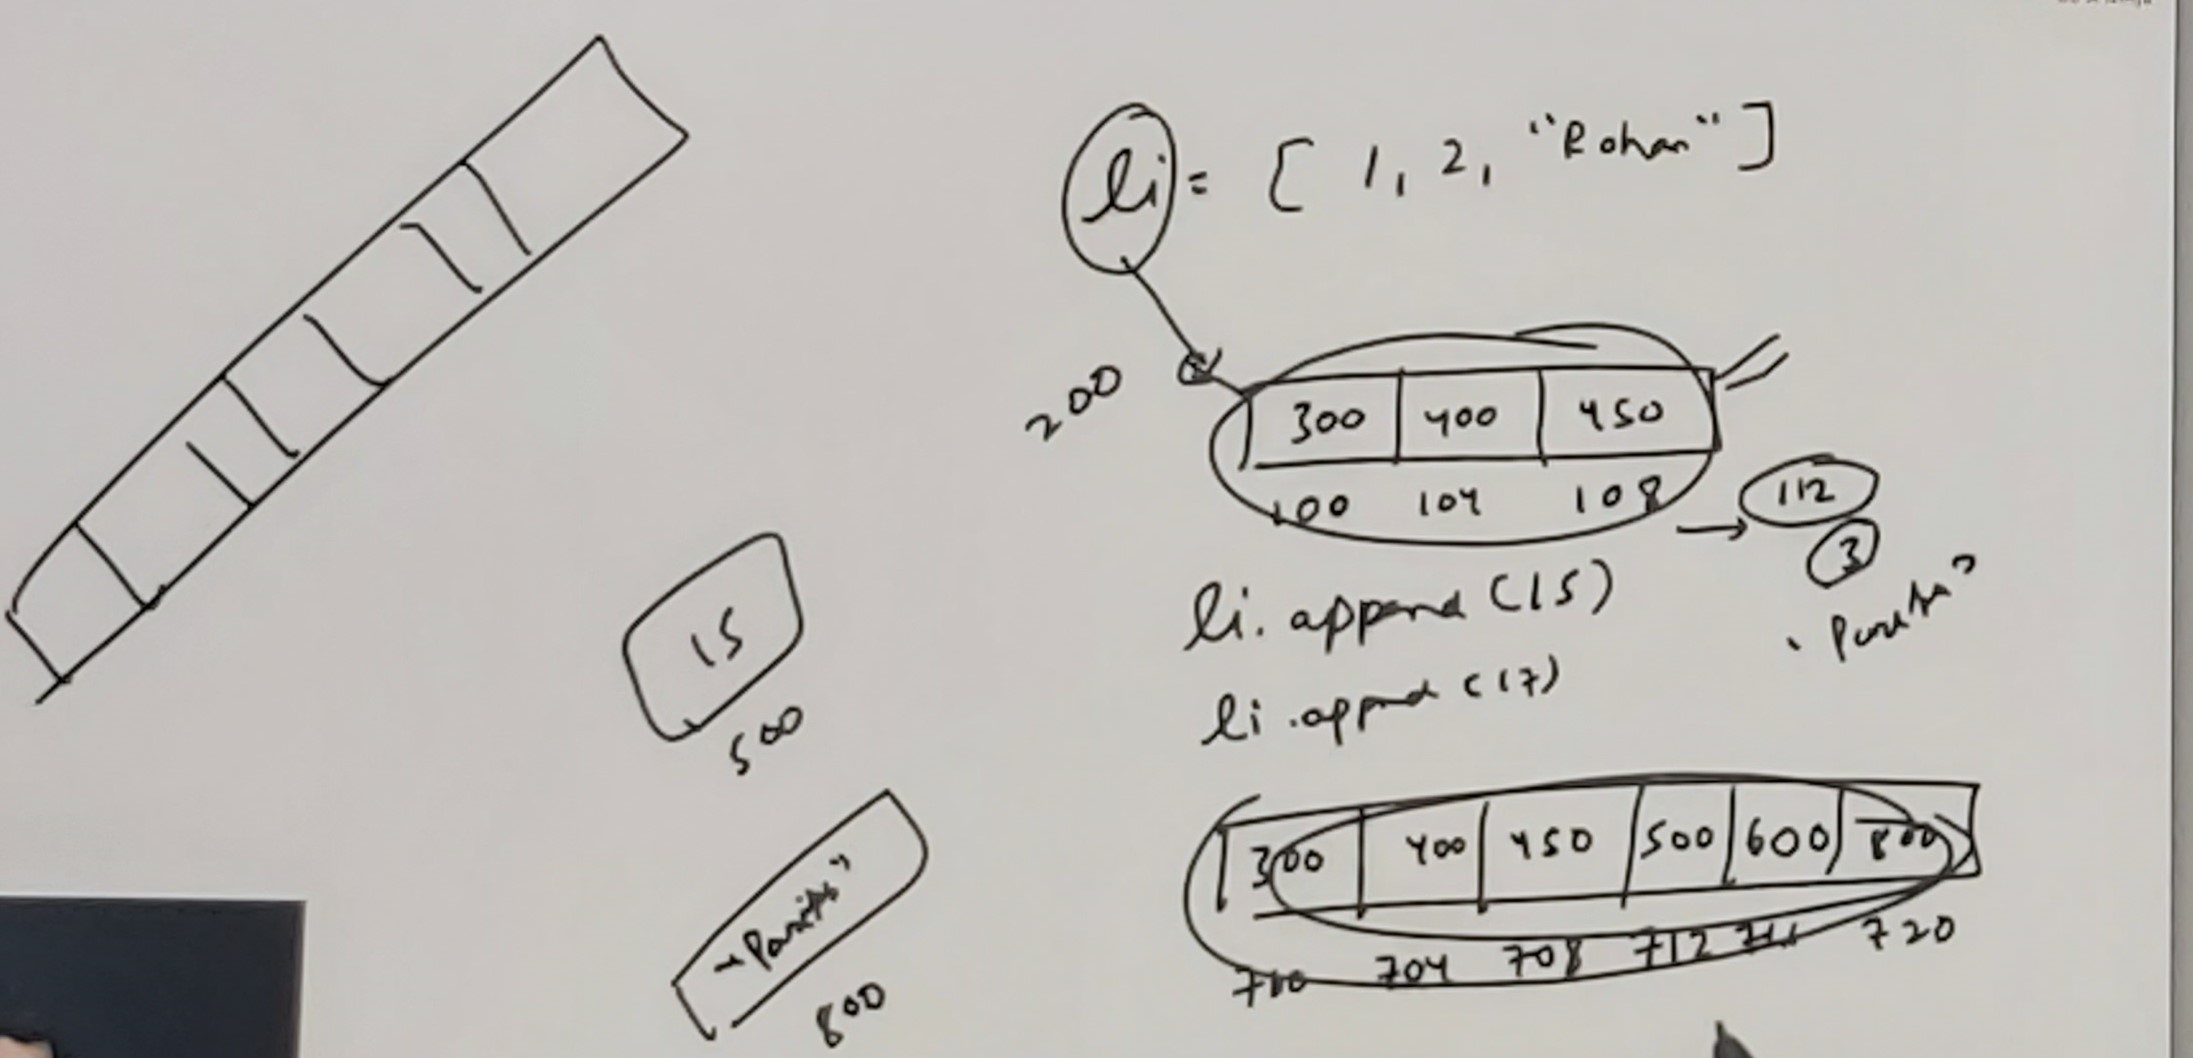 li = [ 1, 2, "Rohan" ]
200
300 400 450
100 104 108 → 112
3
li. append (15)
li .append (17)
15
500
800
300 400 450 500 600 800
700 704 708 712 716 720